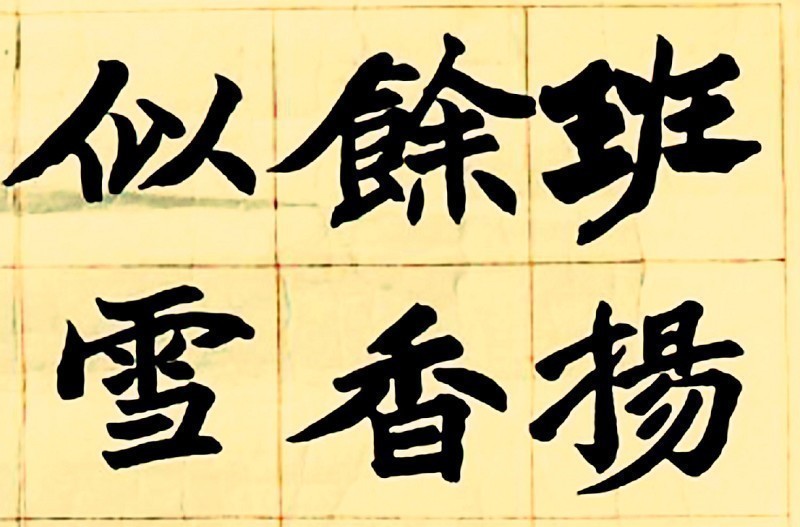 班揚
餘香
似雪